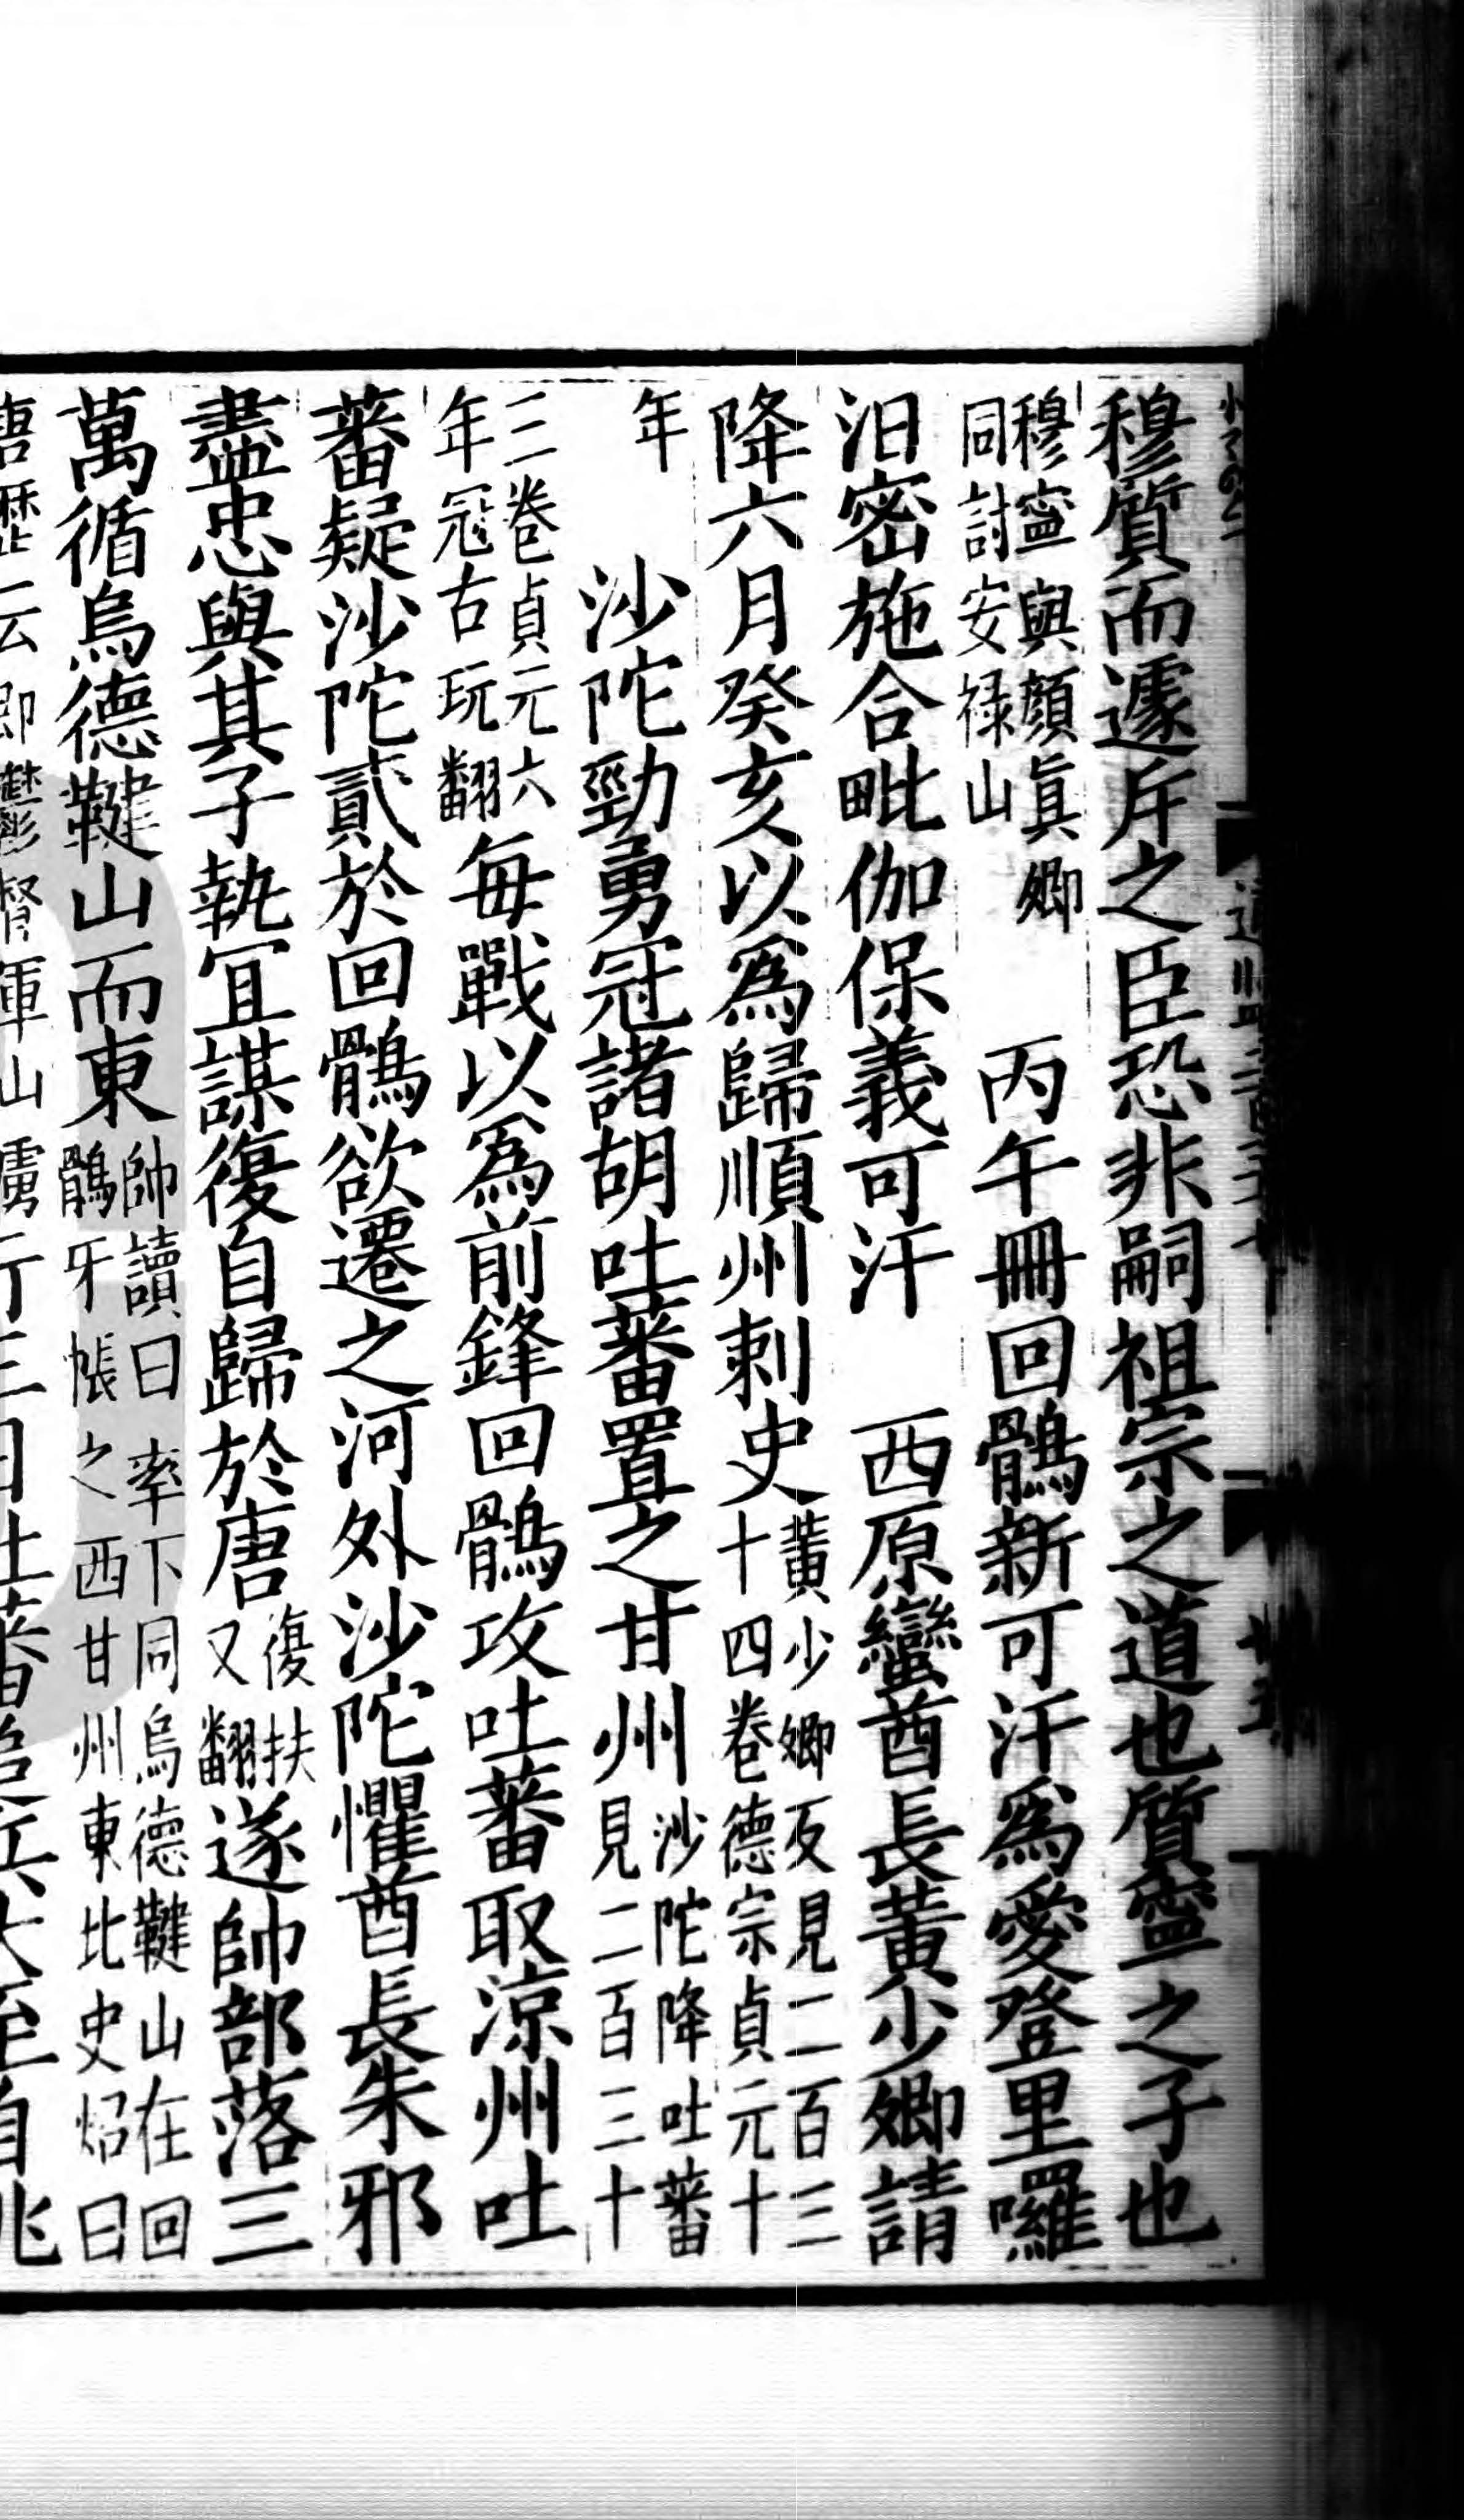 穆質而遽斥之臣恐非嗣祖宗之道也質寧之子也
穆寧與顏眞卿
同討安禄山
丙午冊回鶻新可汗爲愛登里囉
汨密施合毗伽保義可汗　西原蠻酋長黃少卿請
降六月癸亥以爲歸順州刺史
黃少卿反見二百三
十四卷德宗貞元十
年
沙陀勁勇冠諸胡吐蕃置之甘州
沙陀降吐蕃
見二百三十
三卷貞元六
年冠古玩翻
每戰以爲前鋒回鶻攻吐蕃取涼州吐
蕃疑沙陀貳於回鶻欲遷之河外沙陀懼酋長朱邪
盡忠與其子執宜謀復自歸於唐
復扶
又翻
遂帥部落三
萬循烏德鞬山而東
帥讀曰率下同烏德鞬山在回
鶻牙帳之西甘州東北史炤曰
唐歷云即鬱督軍山虜